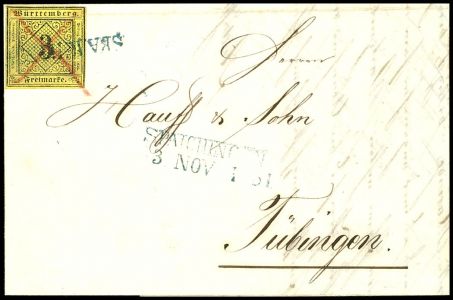 Württemberg.
3.
Freimarke.
Herren
Hauff & Sohn
SPAICHINGEN
3 NOV 1 51
Tübingen.